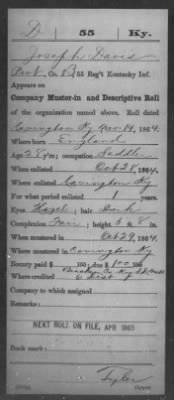 D | 55 | Ky.
Joseph Davis
Pvt, Co. B, 55 Reg't Kentucky Inf.
Appears on
Company Muster-in and Descriptive Roll
of the organization named above. Roll dated
Covington Ky Nov 14, 1864.
Where born England
Age 28 y'rs; occupation Saddler
When enlisted Oct 28, 1864.
Where enlisted Covington Ky
For what period enlisted 1 years.
Eyes Hazel; hair Dark
Complexion Fair; height 5 ft. 8 in.
When mustered in Oct 29, 1864.
Where mustered in Covington Ky
Bounty paid $ 100; due $ 100
Where credited
6 Dist Ky
Company to which assigned
Remarks:
NEXT ROLL ON FILE, APR 1865
Book mark:
Tyler
Copyist.